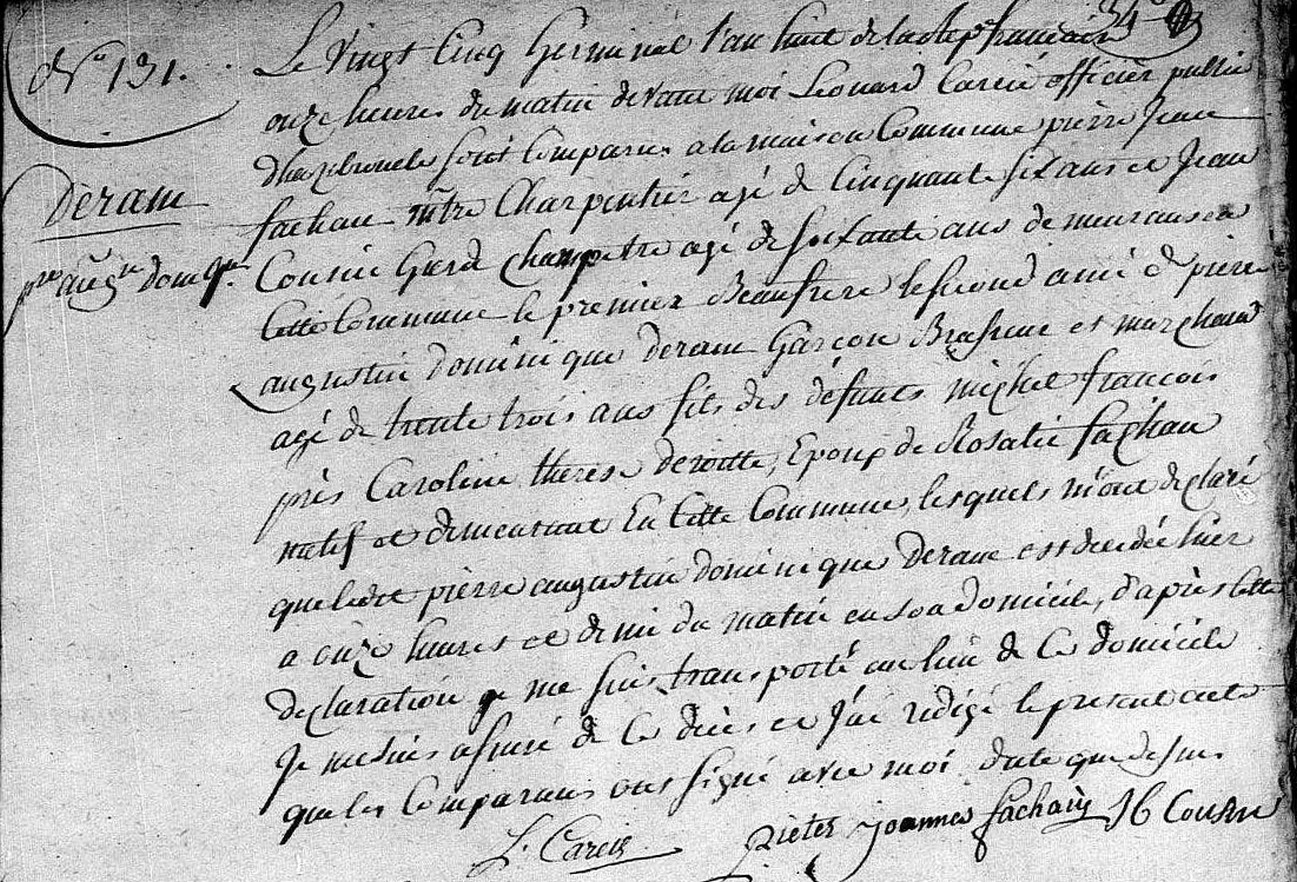 34e
N° 131.
Le Vingt Cinq Germinal l'an huit de la Rep française
onze heures du matin devant moi Leonard Carein officier public
d'hazebrouck sont Comparus a la maison Commune pierre Jean
fachau mtre Charpentier agé de Cinquante six ans et Jean
Deram
pre augn domque
Cousin Gard Champetre agé de soixante ans demeurans en
Cette Commune le premier Beaufrere le second ami de pierre
augustin dominique deram Garçon Brasseur et marchand
agé de trente trois ans fils des défunts michel françois
près Caroline therese dewitte, Epoux de Rosalie fachau
natif et demeurant En Cette Commune, lesquels m'ont declaré
que ledit pierre augustin dominique Deram est decedé hier
a onze heures et demi du matin en son domicile, d'après Cette
declaration je me suis transporté au lieu de Ce domicile
Je me suis assuré de Ce décès et J'ai redigé le present acte
que les Comparans ont signé avec moi date que dessus
L. Carein
pieter joannes fachau
JB Cousin